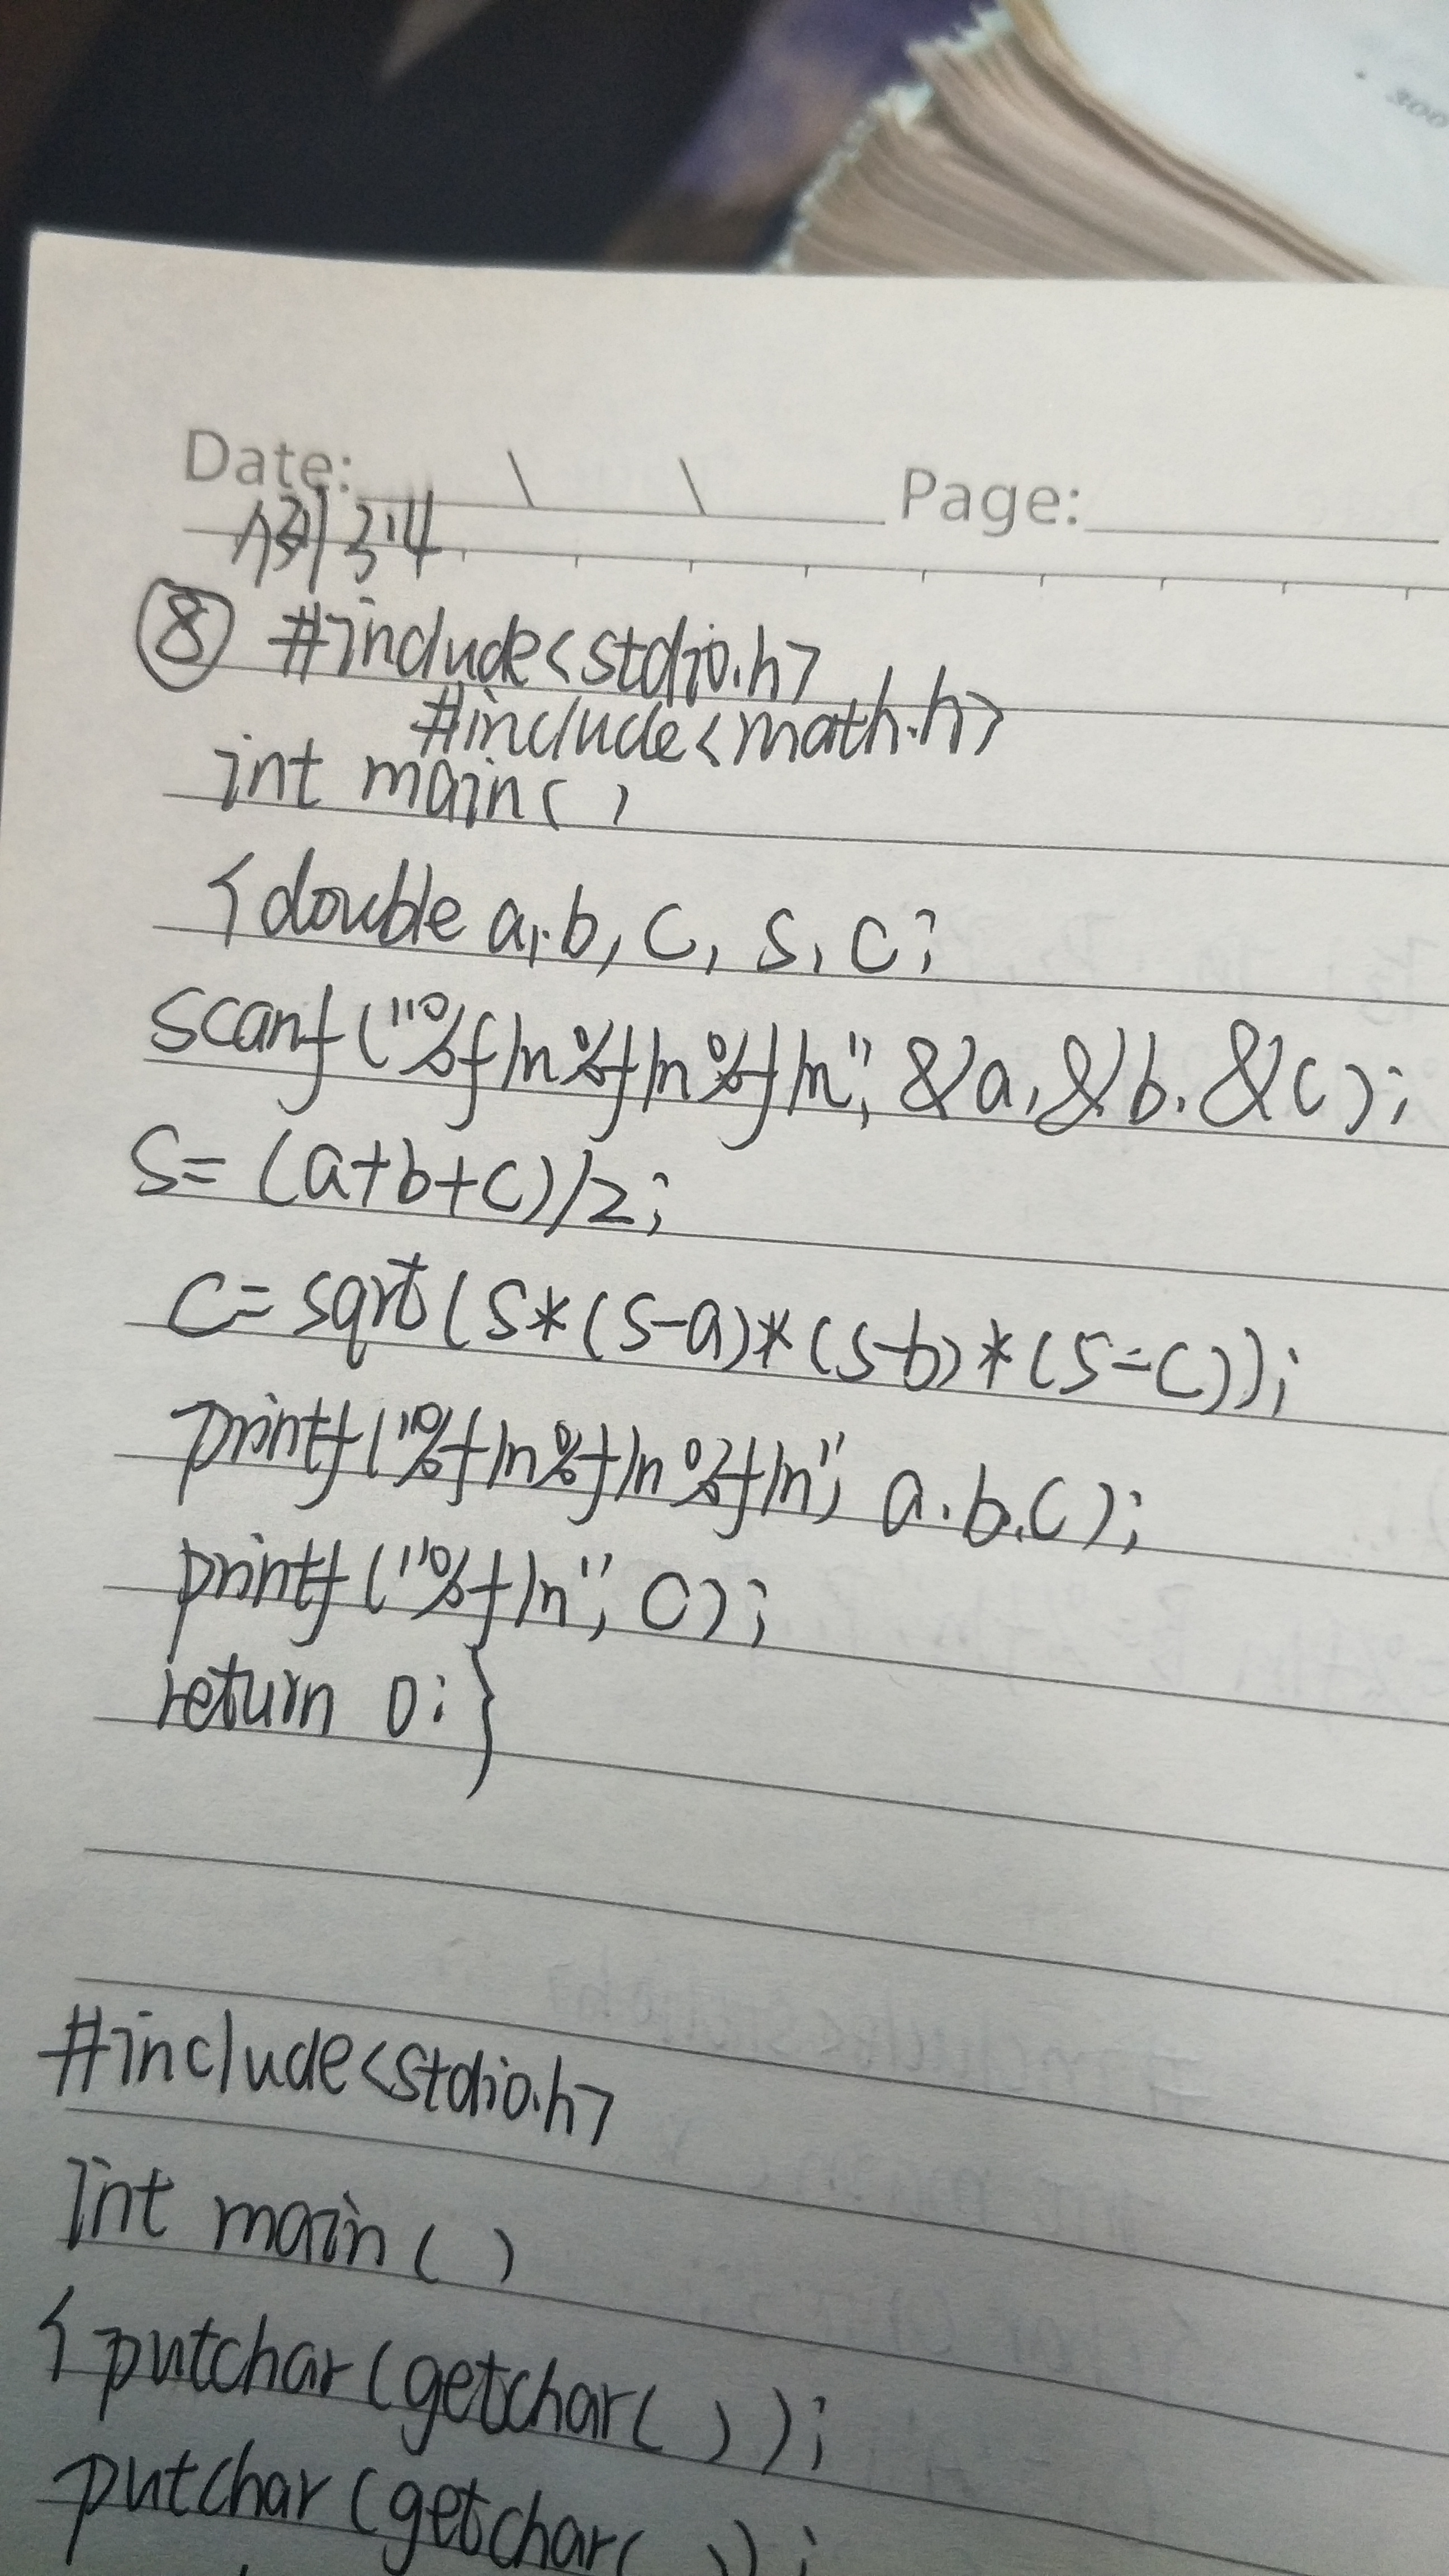 300
Date: \ \ Page:
例3.4
⑧ #include<stdio.h>
#include<math.h>
int main( )
{double a,b, c, s, c;
scanf("%f/n%f/n%f/n", &a,&b,&c);
s= (a+b+c)/2;
c= sqrt(s*(s-a)*(s-b)*(s-c));
printf("%f/n%f/n%f/n", a,b,c);
printf("%f/n", c);
return 0;}
#include<stdio.h>
int main( )
{putchar(getchar( ));
putchar(getchar( ));